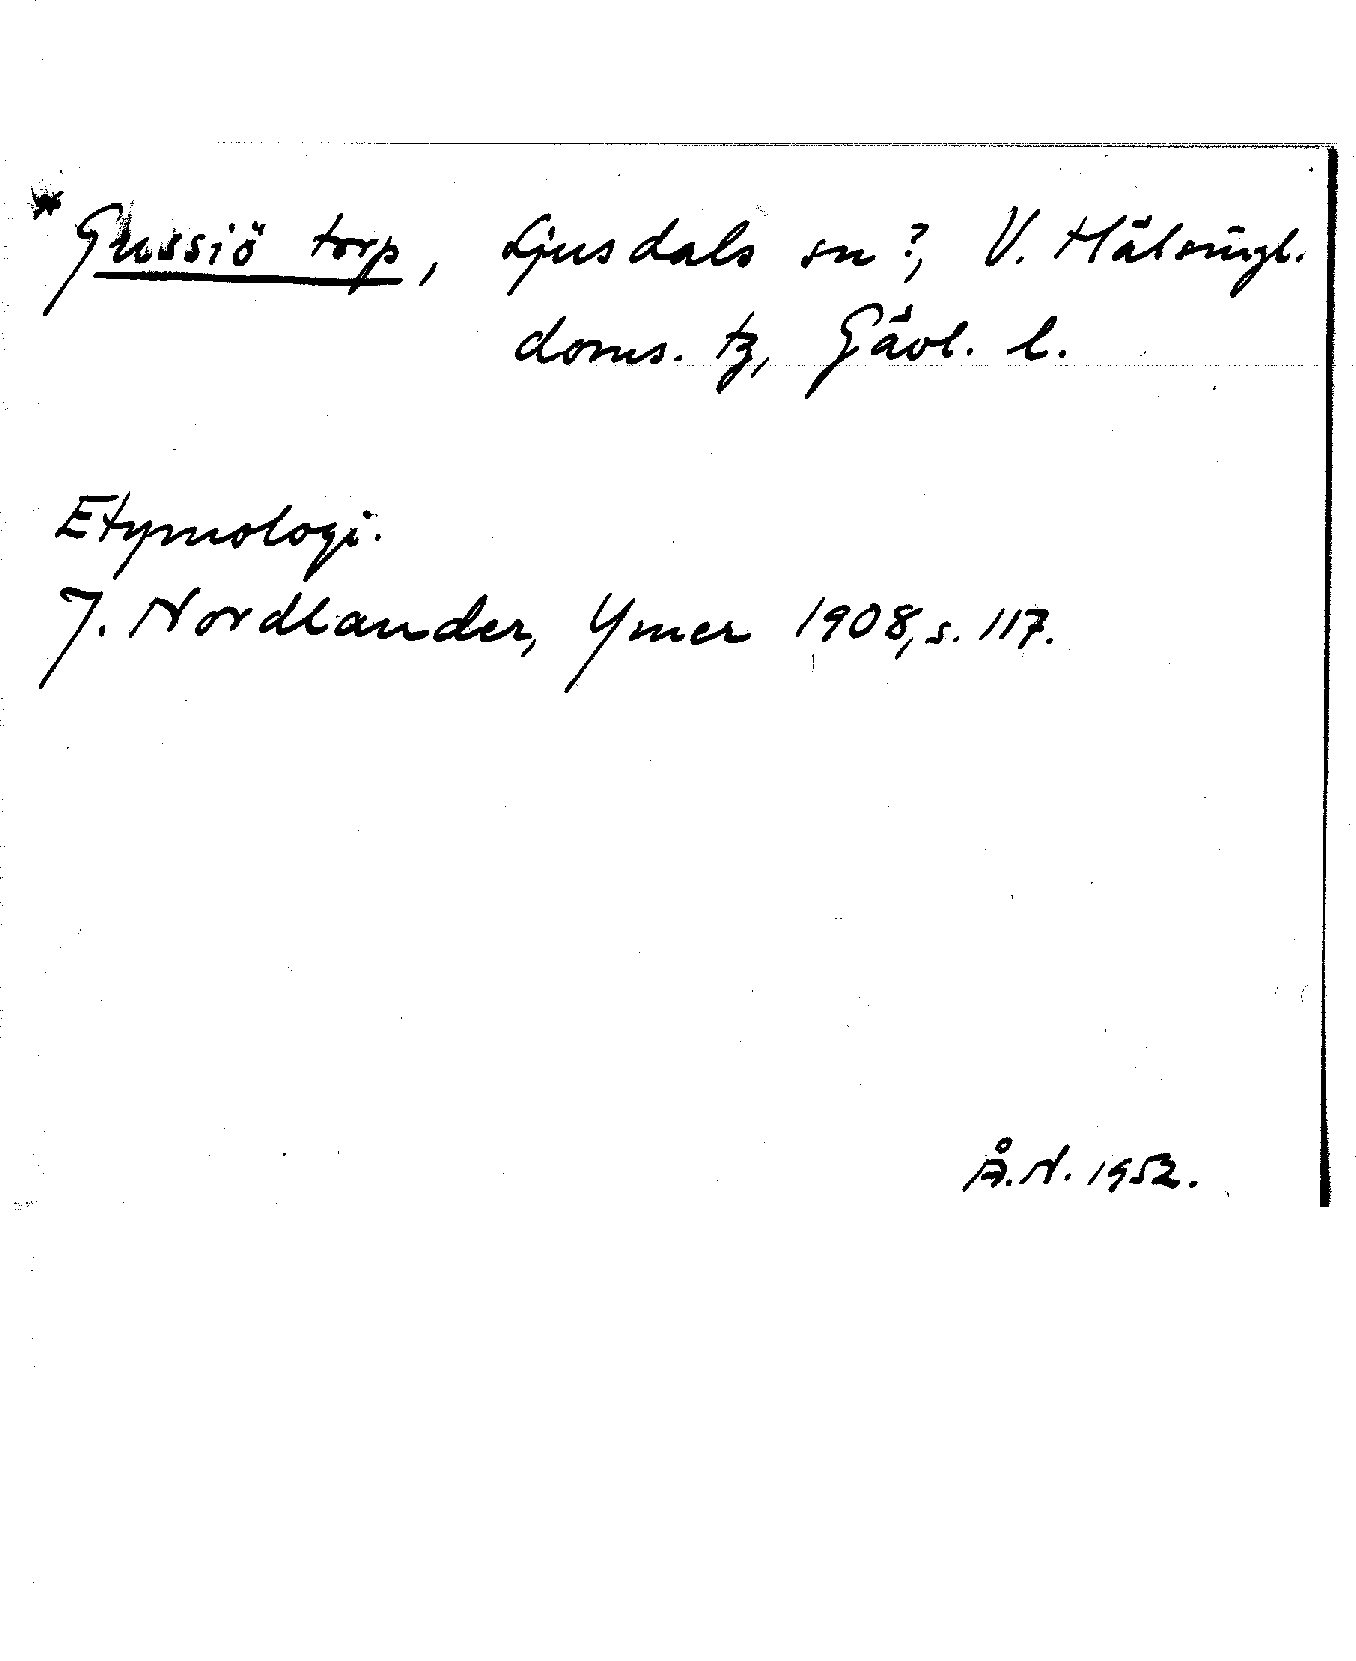 * Gussiö torp, Ljusdals sn?, V. Hälsingl.
doms. tg, Gävl. l.
Etymologi.
J. Nordlander, Ymer 1908, s. 117.
Å.N. 1952.